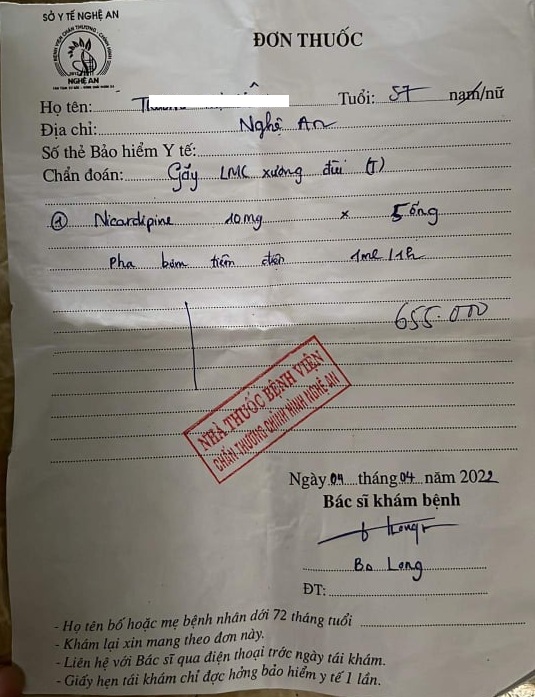 SỞ Y TẾ NGHỆ AN
BỆNH VIỆN CHẤN THƯƠNG - CHỈNH HÌNH
NGHỆ AN
ĐƠN THUỐC
Họ tên: Tuổi: 57 nam/nữ
Địa chỉ: Nghệ An
Số thẻ Bảo hiểm Y tế:
Chẩn đoán: Gãy LMC xương đùi (T)
① Nicardipine 10mg x 5 ống
Pha bơm tiêm điện 1ml/1h
655.000
NHÀ THUỐC BỆNH VIỆN
CHẤN THƯƠNG CHỈNH HÌNH NGHỆ AN
Ngày 04 tháng 04 năm 2022
Bác sĩ khám bệnh
Bs Long
ĐT:
- Họ tên bố hoặc mẹ bệnh nhân dới 72 tháng tuổi
- Khám lại xin mang theo đơn này.
- Liên hệ với Bác sĩ qua điện thoại trớc ngày tái khám.
- Giấy hẹn tái khám chỉ đợc hởng bảo hiểm y tế 1 lần.